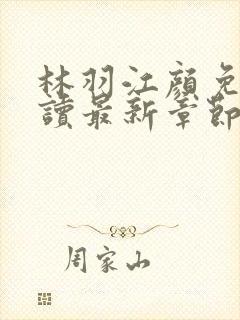 林羽江顏免
讀最新章節
周家山